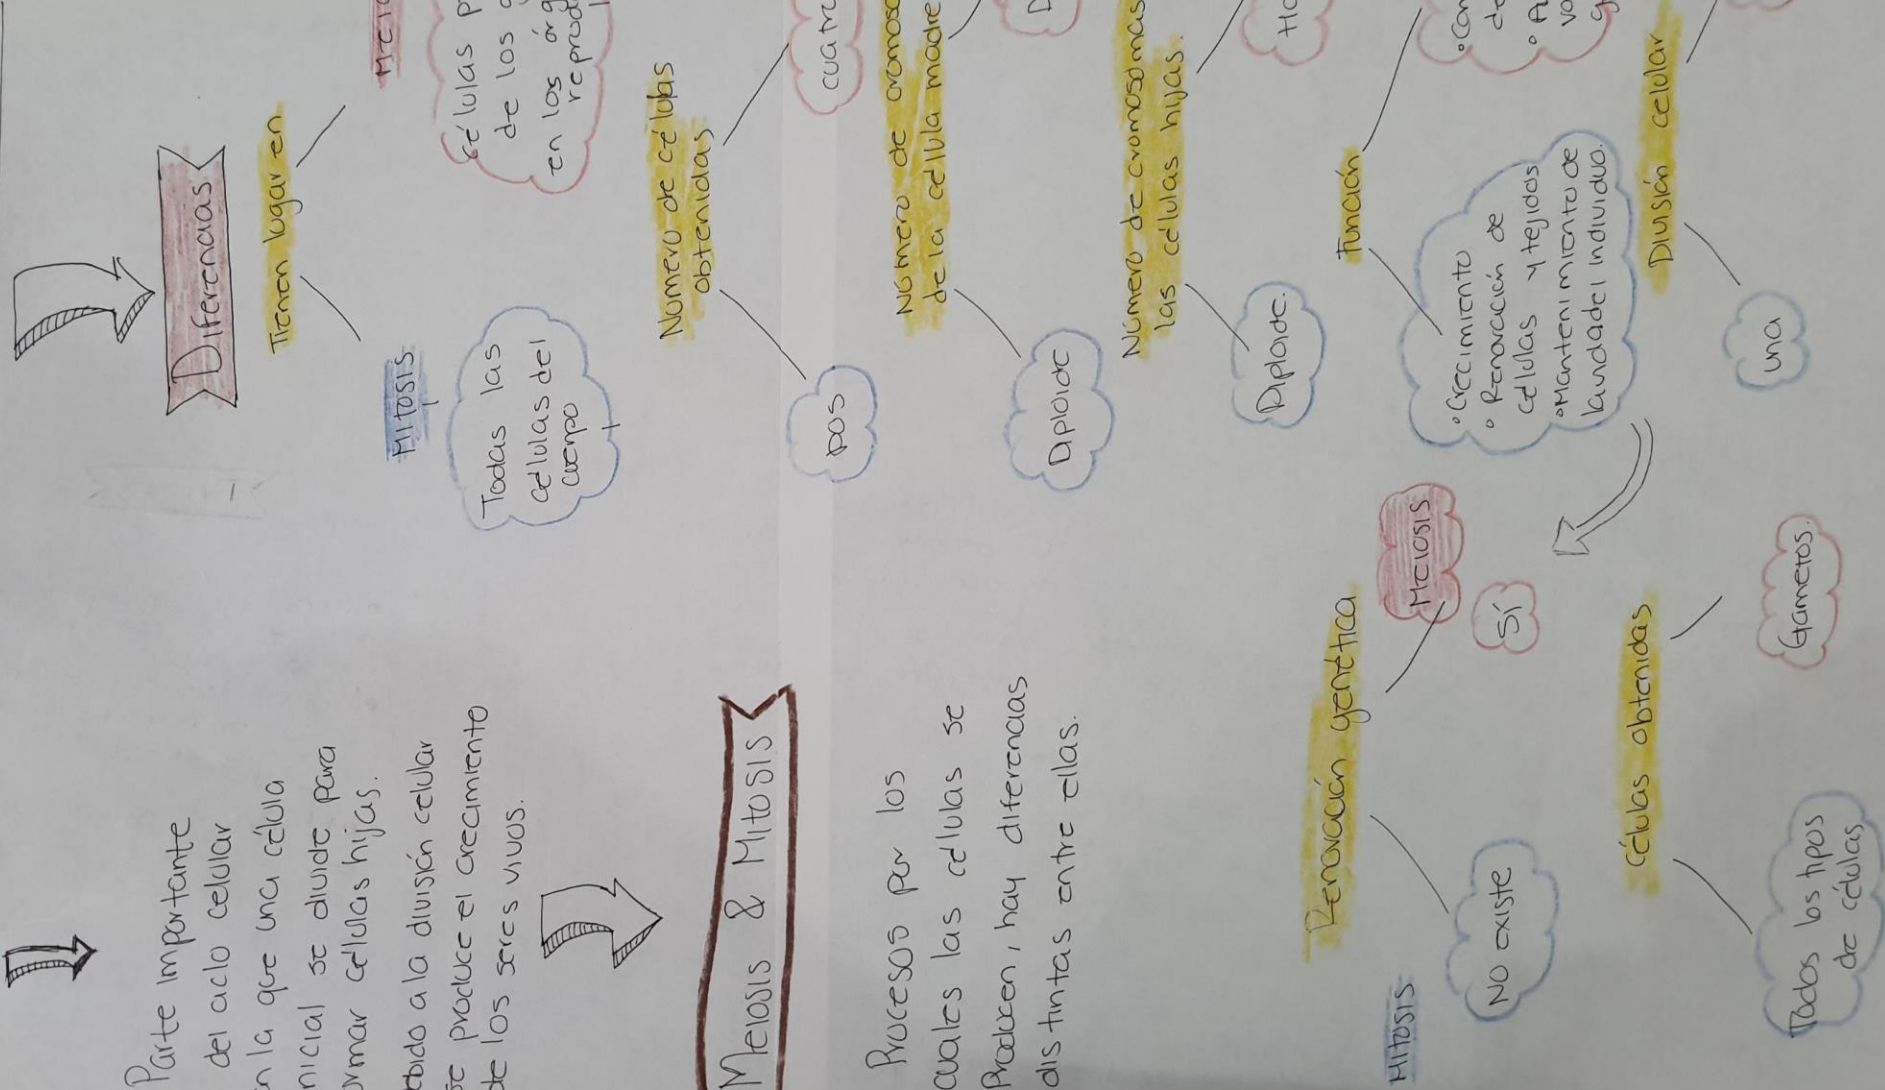 Parte importante
del ciclo celular
en la que una célula
inicial se divide para
formar células hijas.
debido a la división celular
se produce el crecimiento
de los seres vivos.
Meiosis & Mitosis
Procesos por los
cuales las células se
Producen, hay diferencias
distintas entre ellas.
Diferencias
Tienen lugar en
Mitosis
Todas las
células del
cuerpo
Células
de los
en los
Número de células
obtenidas
Dos
Número de
de la célula madre
Diploide
Número de cromosomas
las células hijas.
Diploide.
Función
• Crecimiento
• Renovación de
células y tejidos
• Mantenimiento de
la vida del individuo.
División celular
una
Renovación genética
Mitosis
No existe
Meiosis
Sí
Células obtenidas
Todos los tipos
de células
Gametos.